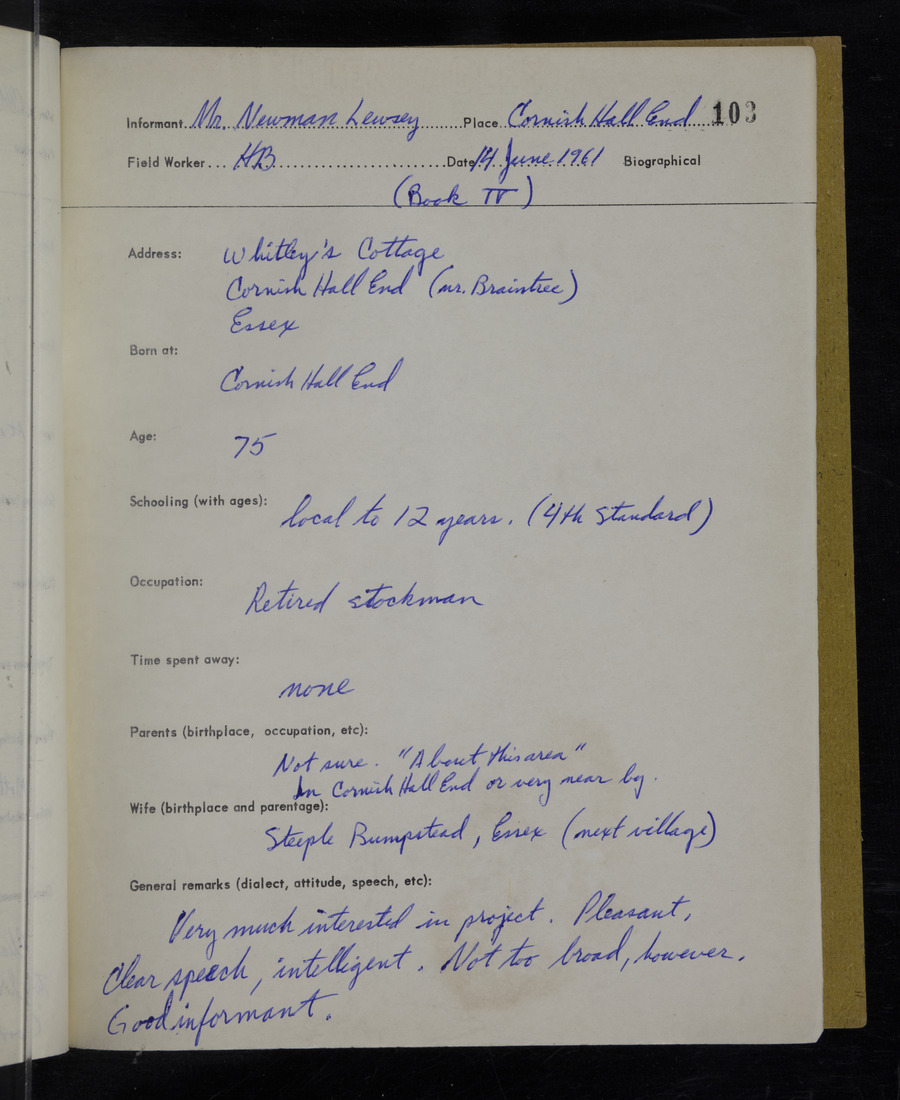 Informant Mr. Newman Lewsey Place Cornish Hall End 103
Field Worker HB Date 14 June 1961 Biographical
(Book IV)
Address: Whitley's Cottage
Cornish Hall End (nr. Braintree)
Essex
Born at:
Cornish Hall End
Age: 75
Schooling (with ages): local to 12 years. (4th Standard)
Occupation:
Retired stockman
Time spent away:
none
Parents (birthplace, occupation, etc):
Not sure. "About this area"
In Cornish Hall End or very near by.
Wife (birthplace and parentage):
Steeple Bumpstead, Essex (next village)
General remarks (dialect, attitude, speech, etc):
Very much interested in project. Pleasant,
Clear speech, intelligent. Not too broad, however.
Good informant.